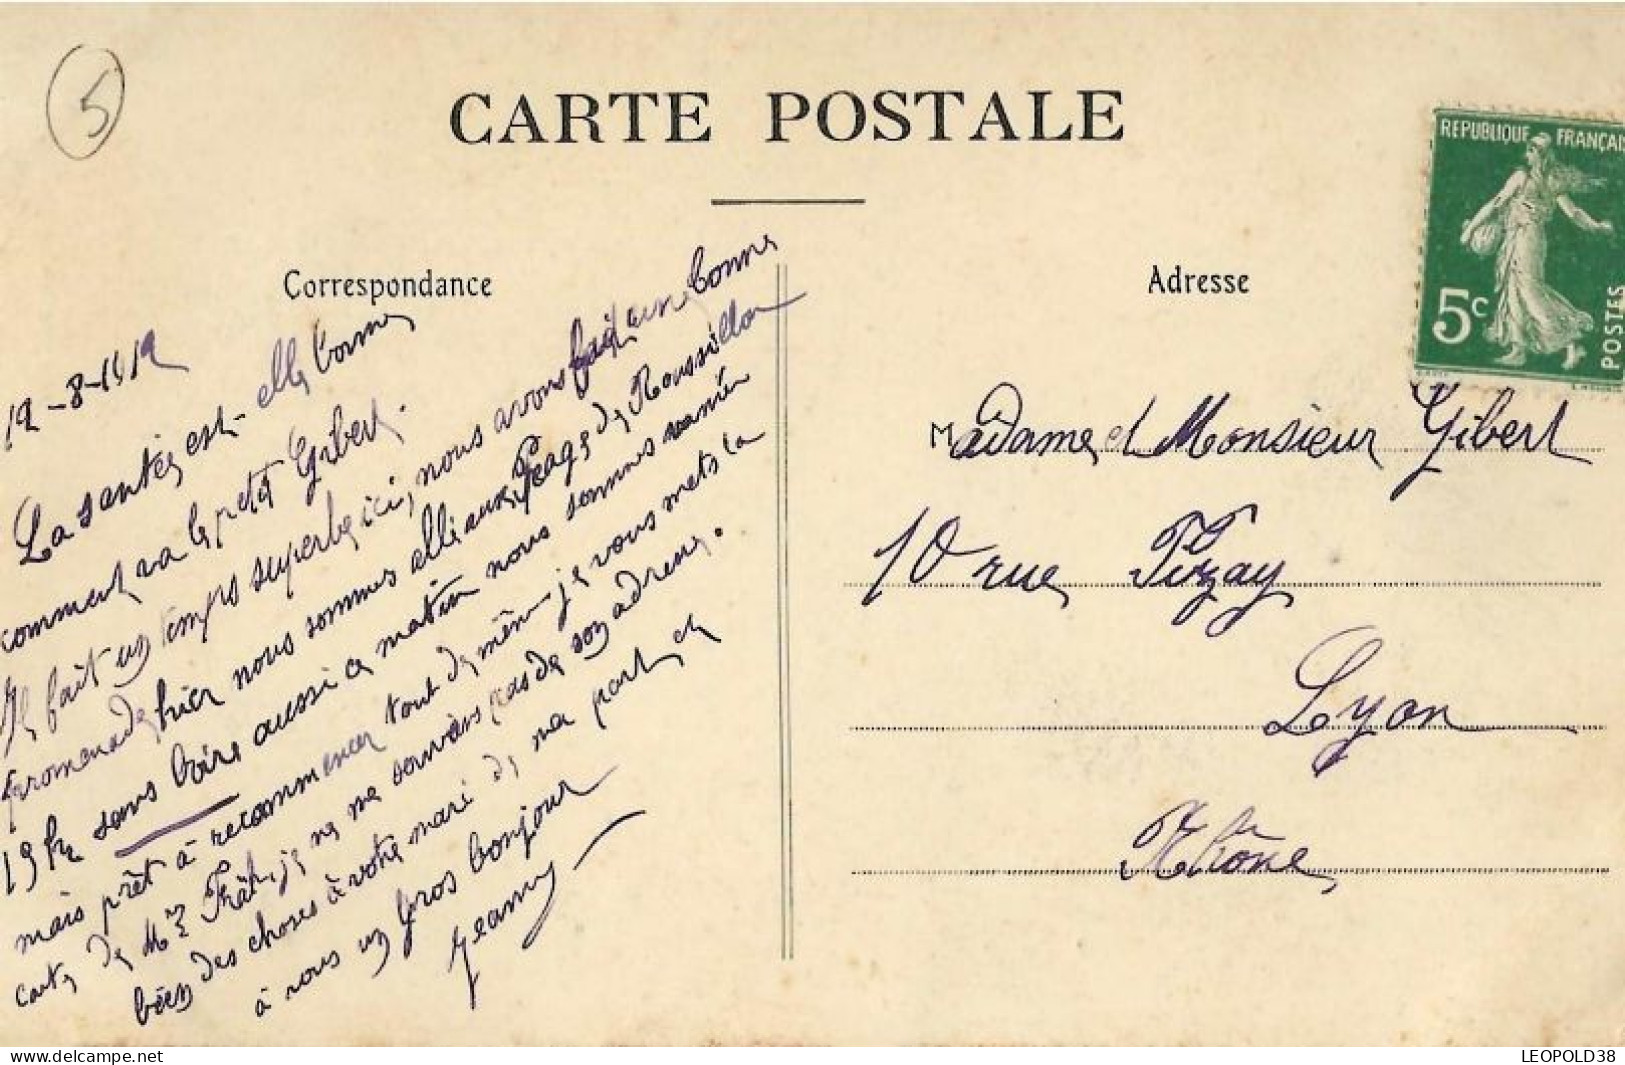 5
CARTE POSTALE
REPUBLIQUE FRANÇAIS
5c
POSTES
Correspondance
Adresse
La santé est-elle bonne
comment va le petit Gibert.
Il fait un temps superbe ici, nous avons fait une bonne
promenade, hier nous sommes allé aux Péage de Roussillon
19 k sans boire aussi ce matin nous sommes
mais prêt à recommencer tout de même je vous mets la
carte de Mr je ne me souviens pas de son adresse.
bien des choses à votre mari de ma part et
à vous un gros bonjour
Jeanny
Madame et Monsieur Gibert
10 rue Pizay
Lyon
Rhône
LEOPOLD38
https://www.delcampe.net